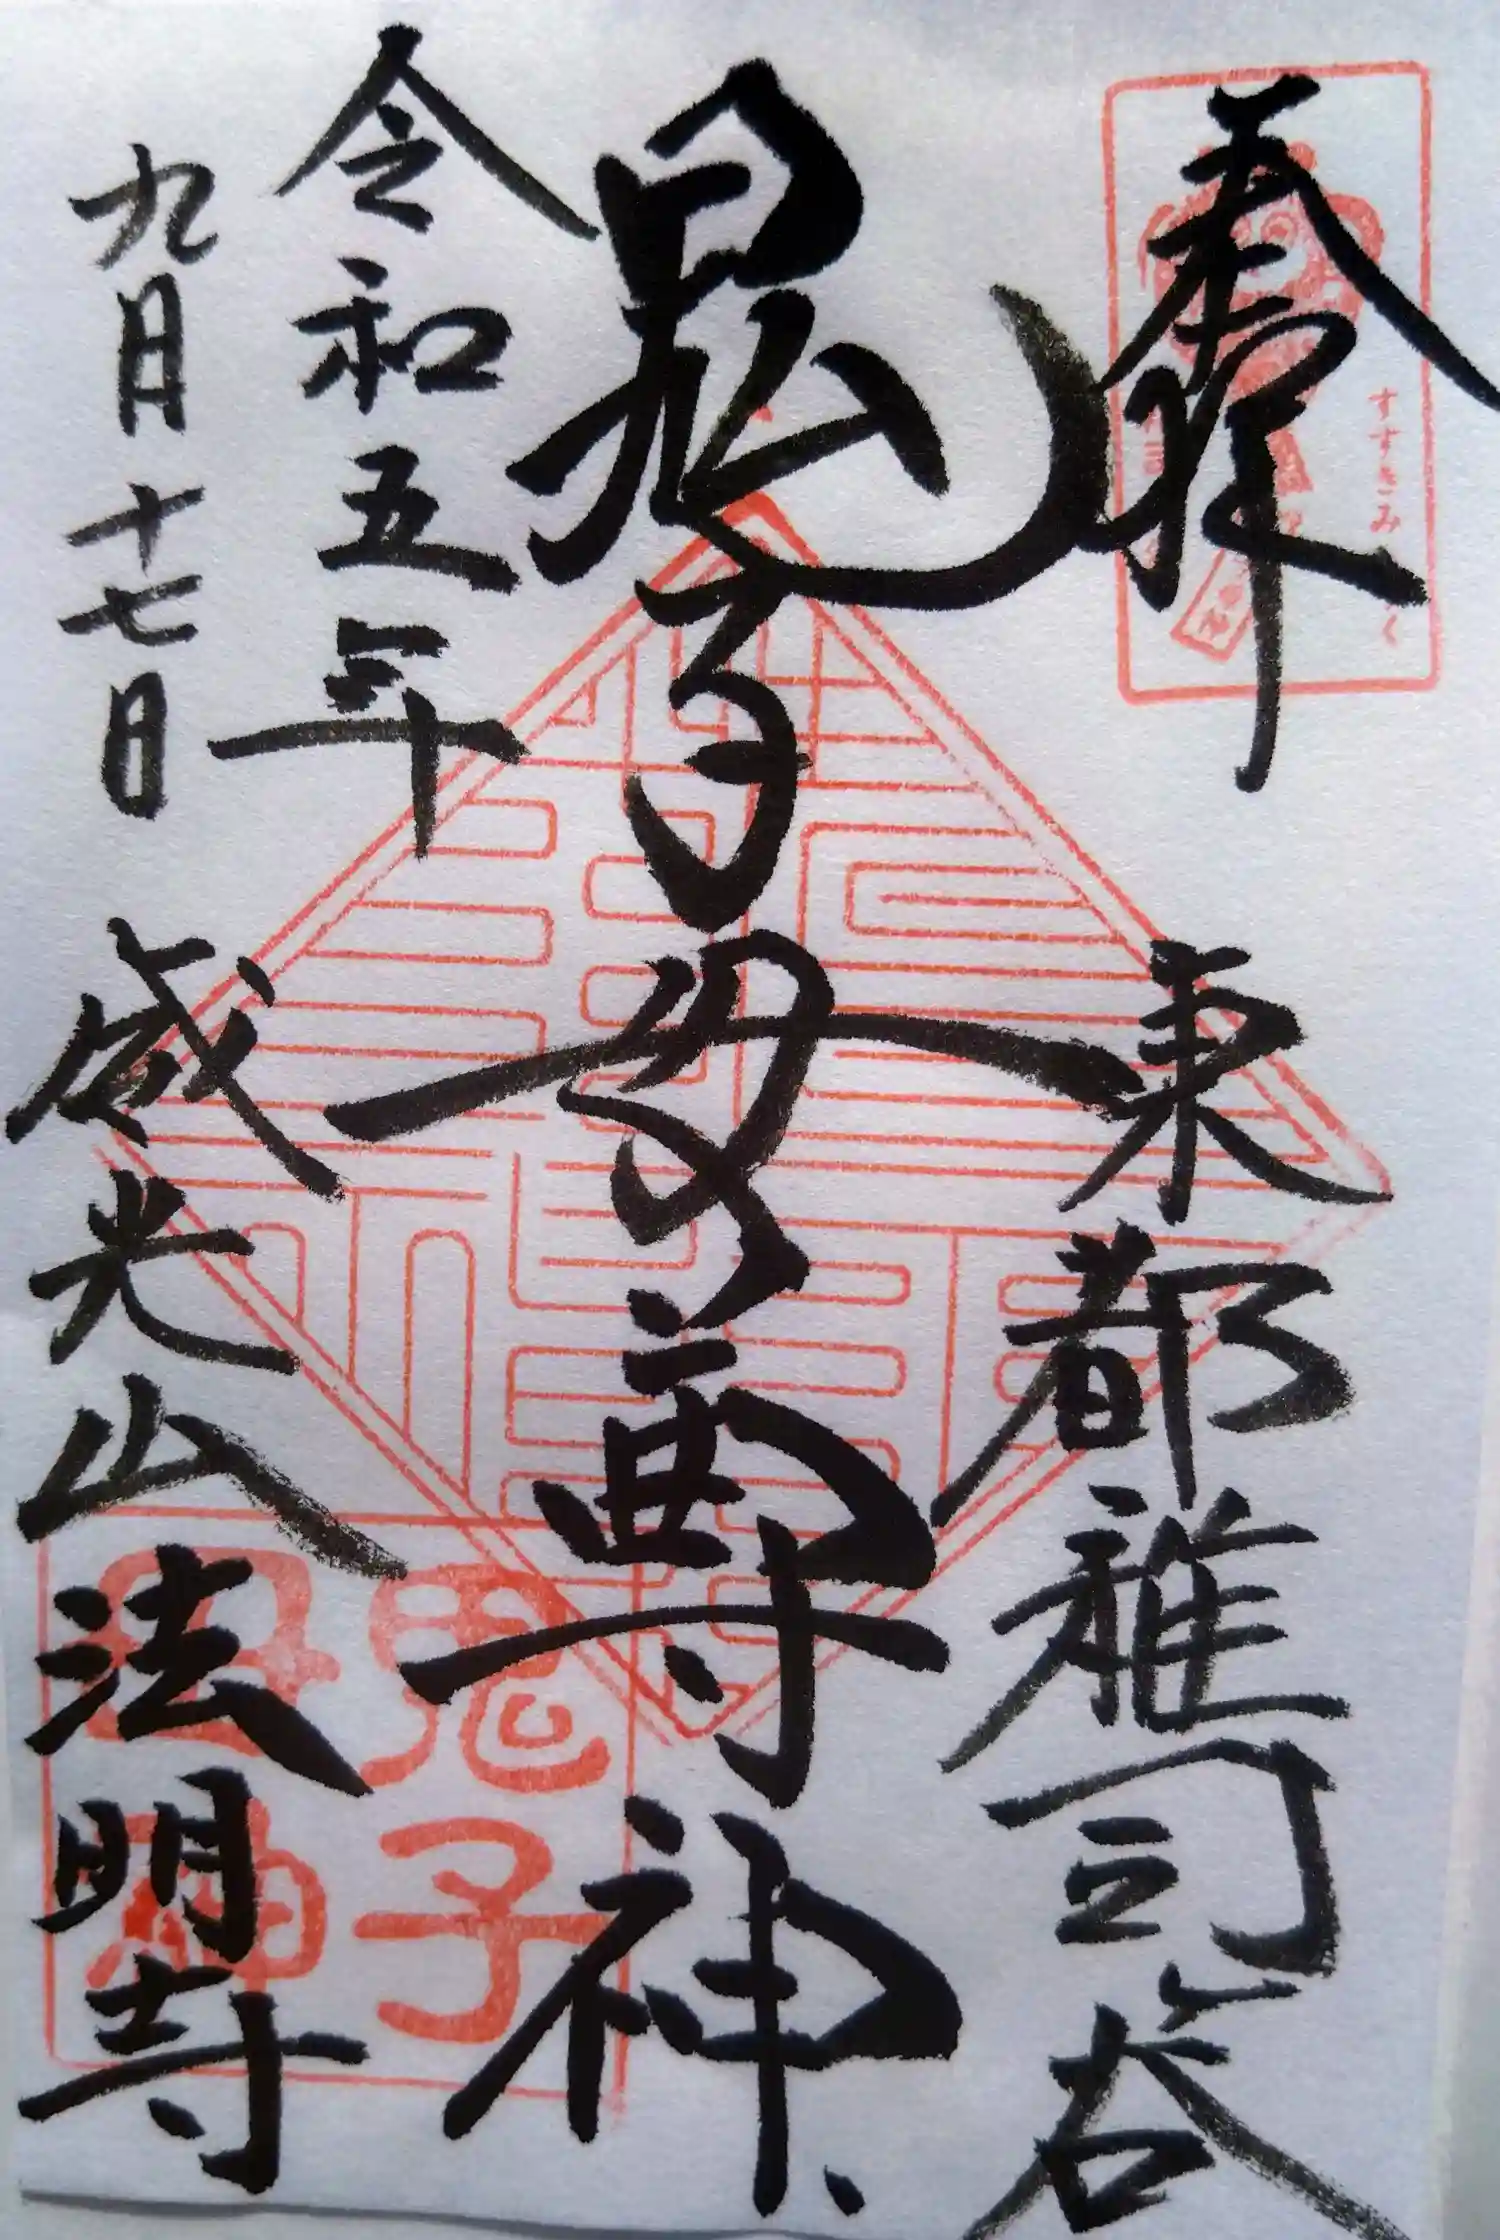 奉拝
東都雑司谷
鬼子母尊神
令和五年
九月十七日
威光山法明寺
すすきみ
く
鬼子
母神